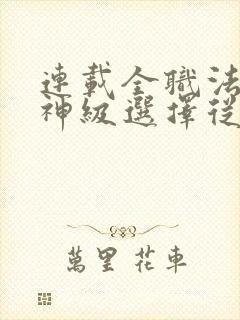 連載全職法
神級選擇從
萬里花車